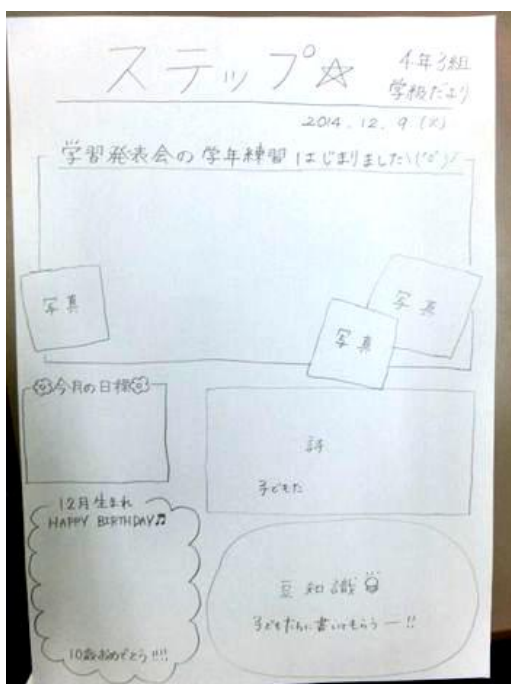 ステップ☆
4年3組
学級だより
2014.12.9(火)
学習発表会の学年練習はじまりました\(^o^)/
写真
写真
写真
今月の目標
詩
子どもた
12月生まれ
HAPPY BIRTHDAY♬
10歳おめでとう!!!
豆知識
子どもたちに書いてもらうー!!